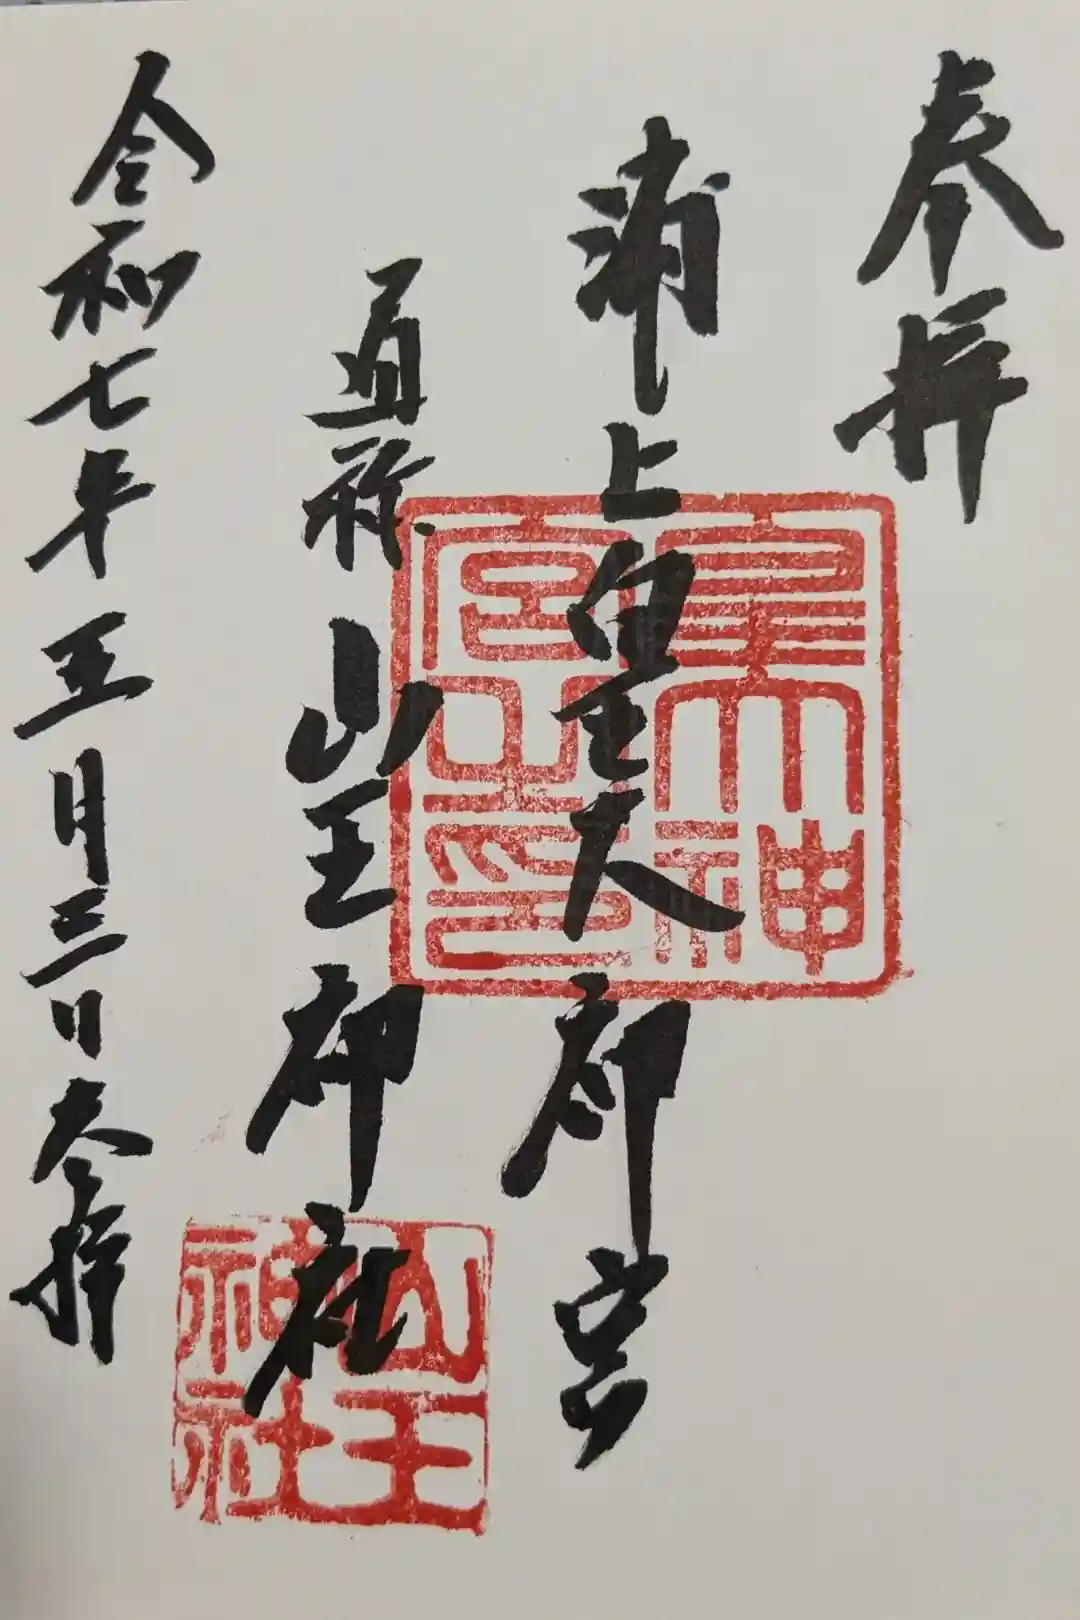 奉拝
浦上皇大神宮
通称 山王神社
令和七年五月三日参拝
皇大神宮之印
山王神社